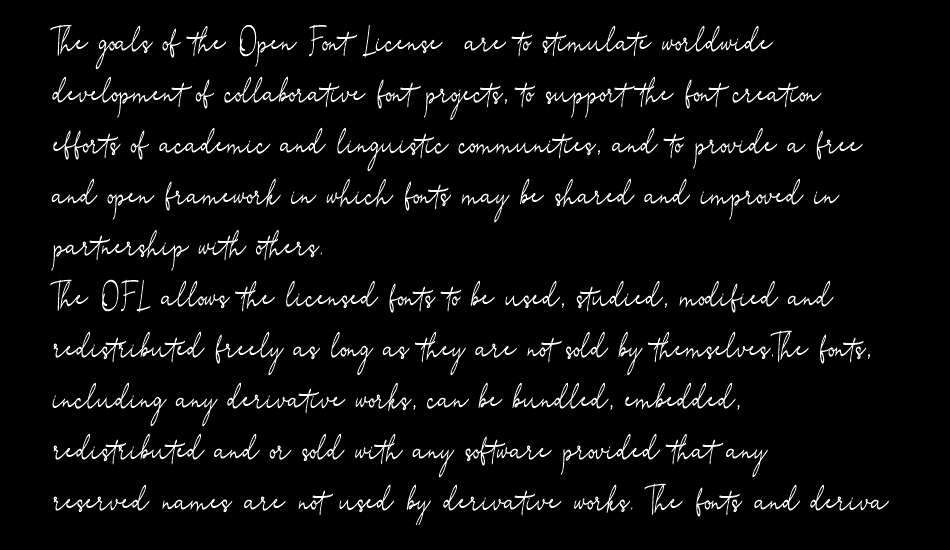 The goals of the Open Font License are to stimulate worldwide
development of collaborative font projects, to support the font creation
efforts of academic and linguistic communities, and to provide a free
and open framework in which fonts may be shared and improved in
partnership with others.
The OFL allows the licensed fonts to be used, studied, modified and
redistributed freely as long as they are not sold by themselves.The fonts,
including any derivative works, can be bundled, embedded,
redistributed and or sold with any software provided that any
reserved names are not used by derivative works. The fonts and deriva